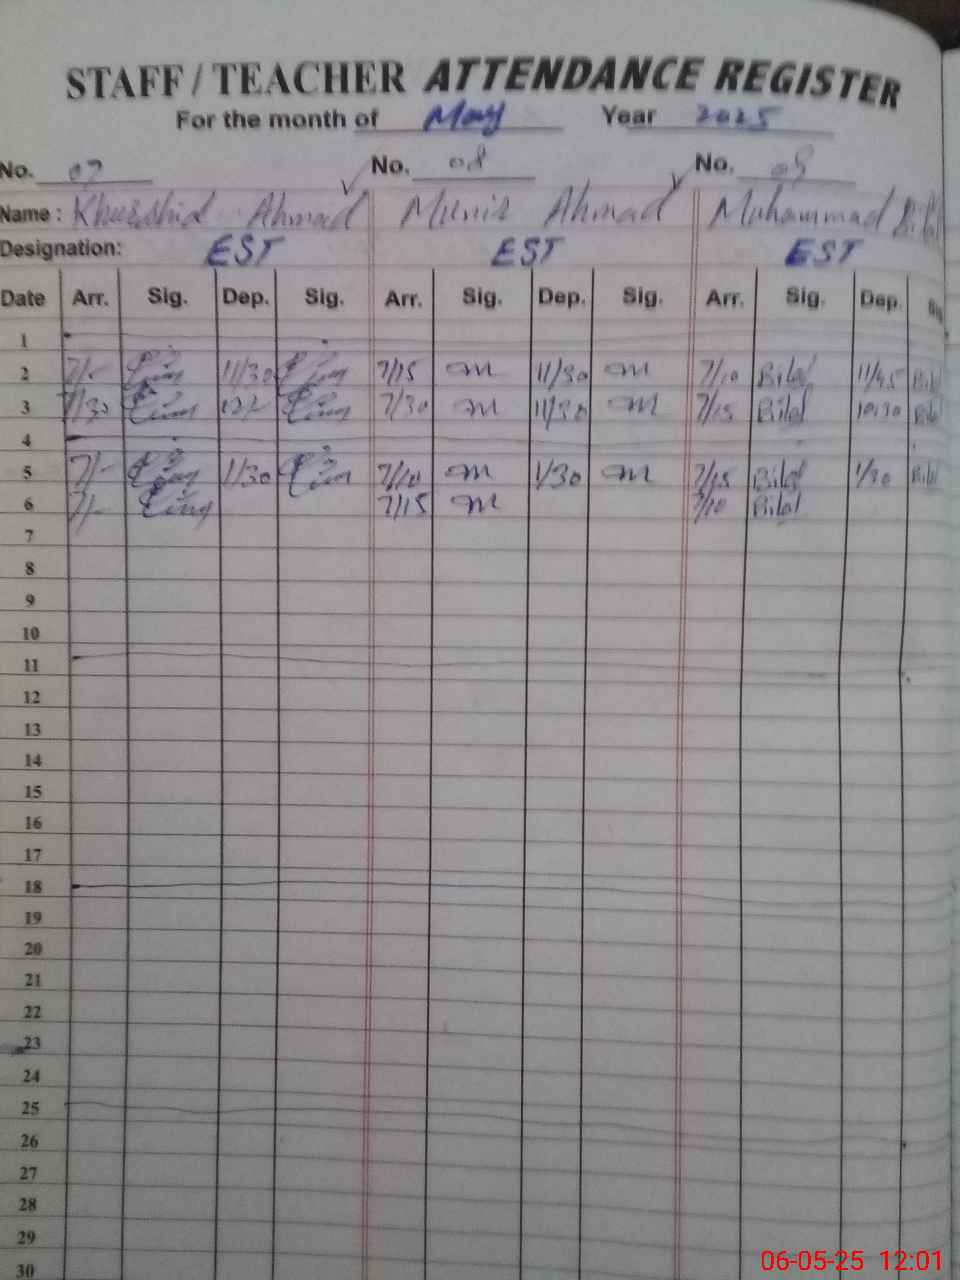 STAFF / TEACHER ATTENDANCE REGISTER
For the month of May Year 2025
No. 07 No. 08 No. 09
Name : Khurshid Ahmad Munir Ahmad Muhammad Bilal
Designation: EST EST EST
Date Arr. Sig. Dep. Sig. Arr. Sig. Dep. Sig. Arr. Sig. Dep. Sig
1
2 7/- 11/30 7/15 m 11/30 m 7/10 Bilal 11/45 Bilal
3 7/30 7/30 m 11/30 m 7/15 Bilal 10:30 Bilal
4
5 7/- 1/30 7/10 m 1/30 m 7/15 Bilal 1/30 Bilal
6 7/- 7/15 m 7/10 Bilal
7
8
9
10
11
12
13
14
15
16
17
18
19
20
21
22
23
24
25
26
27
28
29
30
06-05-25 12:01